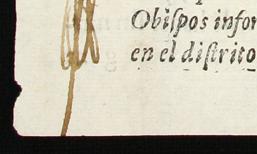 Obiſpos infor
en el diſtrito